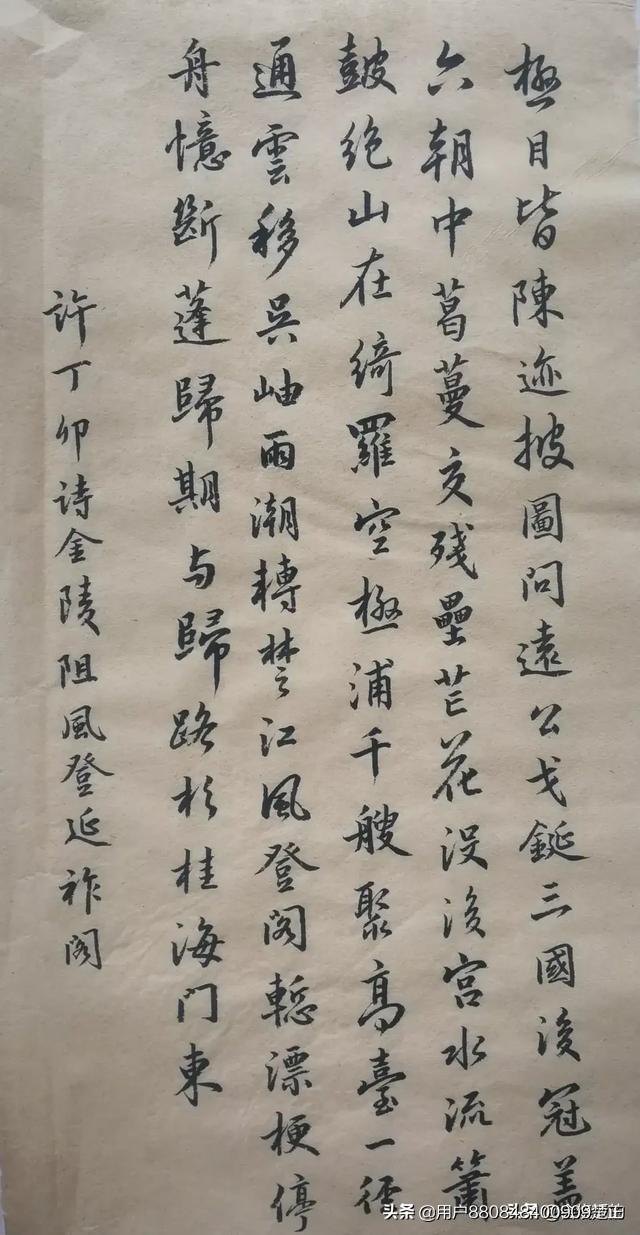 極目皆陳迹披圖問遠公戈鋋三國後冠盖
六朝中葛蔓交殘壘芒花没後宫水流簫
鼓絶山在綺羅空極浦千艘聚高臺一徑
通雲移吳岫雨潮轉楚江風登閣慙漂梗停
舟憶斷蓬歸期与歸路杉桂海門東
許丁卯詩金陵阻風登延祚閣
头条 @用户8808484009093